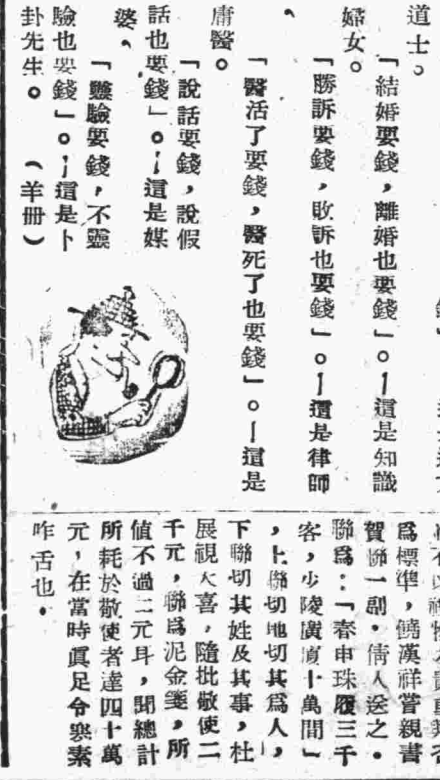 道士。
「結婚要錢，離婚也要錢」。—這是知識
婦女。
「勝訴要錢，敗訴也要錢」。—這是律師
。
「醫活了要錢，醫死了也要錢」。—這是
庸醫。
「說話要錢，說假
話也要錢」。—這是媒
婆。
「靈驗要錢，不靈
驗也要錢」。—這是卜
卦先生。　（羊冊）
爲標準，饒漢祥嘗親書
賀聯一副，倩人送之。
聯爲：「春申珠履三千
客，少陵廣廈十萬間」
，上聯切地切其爲人，
下聯切其姓及其事，杜
展視大喜，隨批敬使二
千元，聯爲泥金箋，所
値不過二元耳，聞總計
所耗於敬使者達四十萬
元，在當時眞足令寒素
咋舌也。